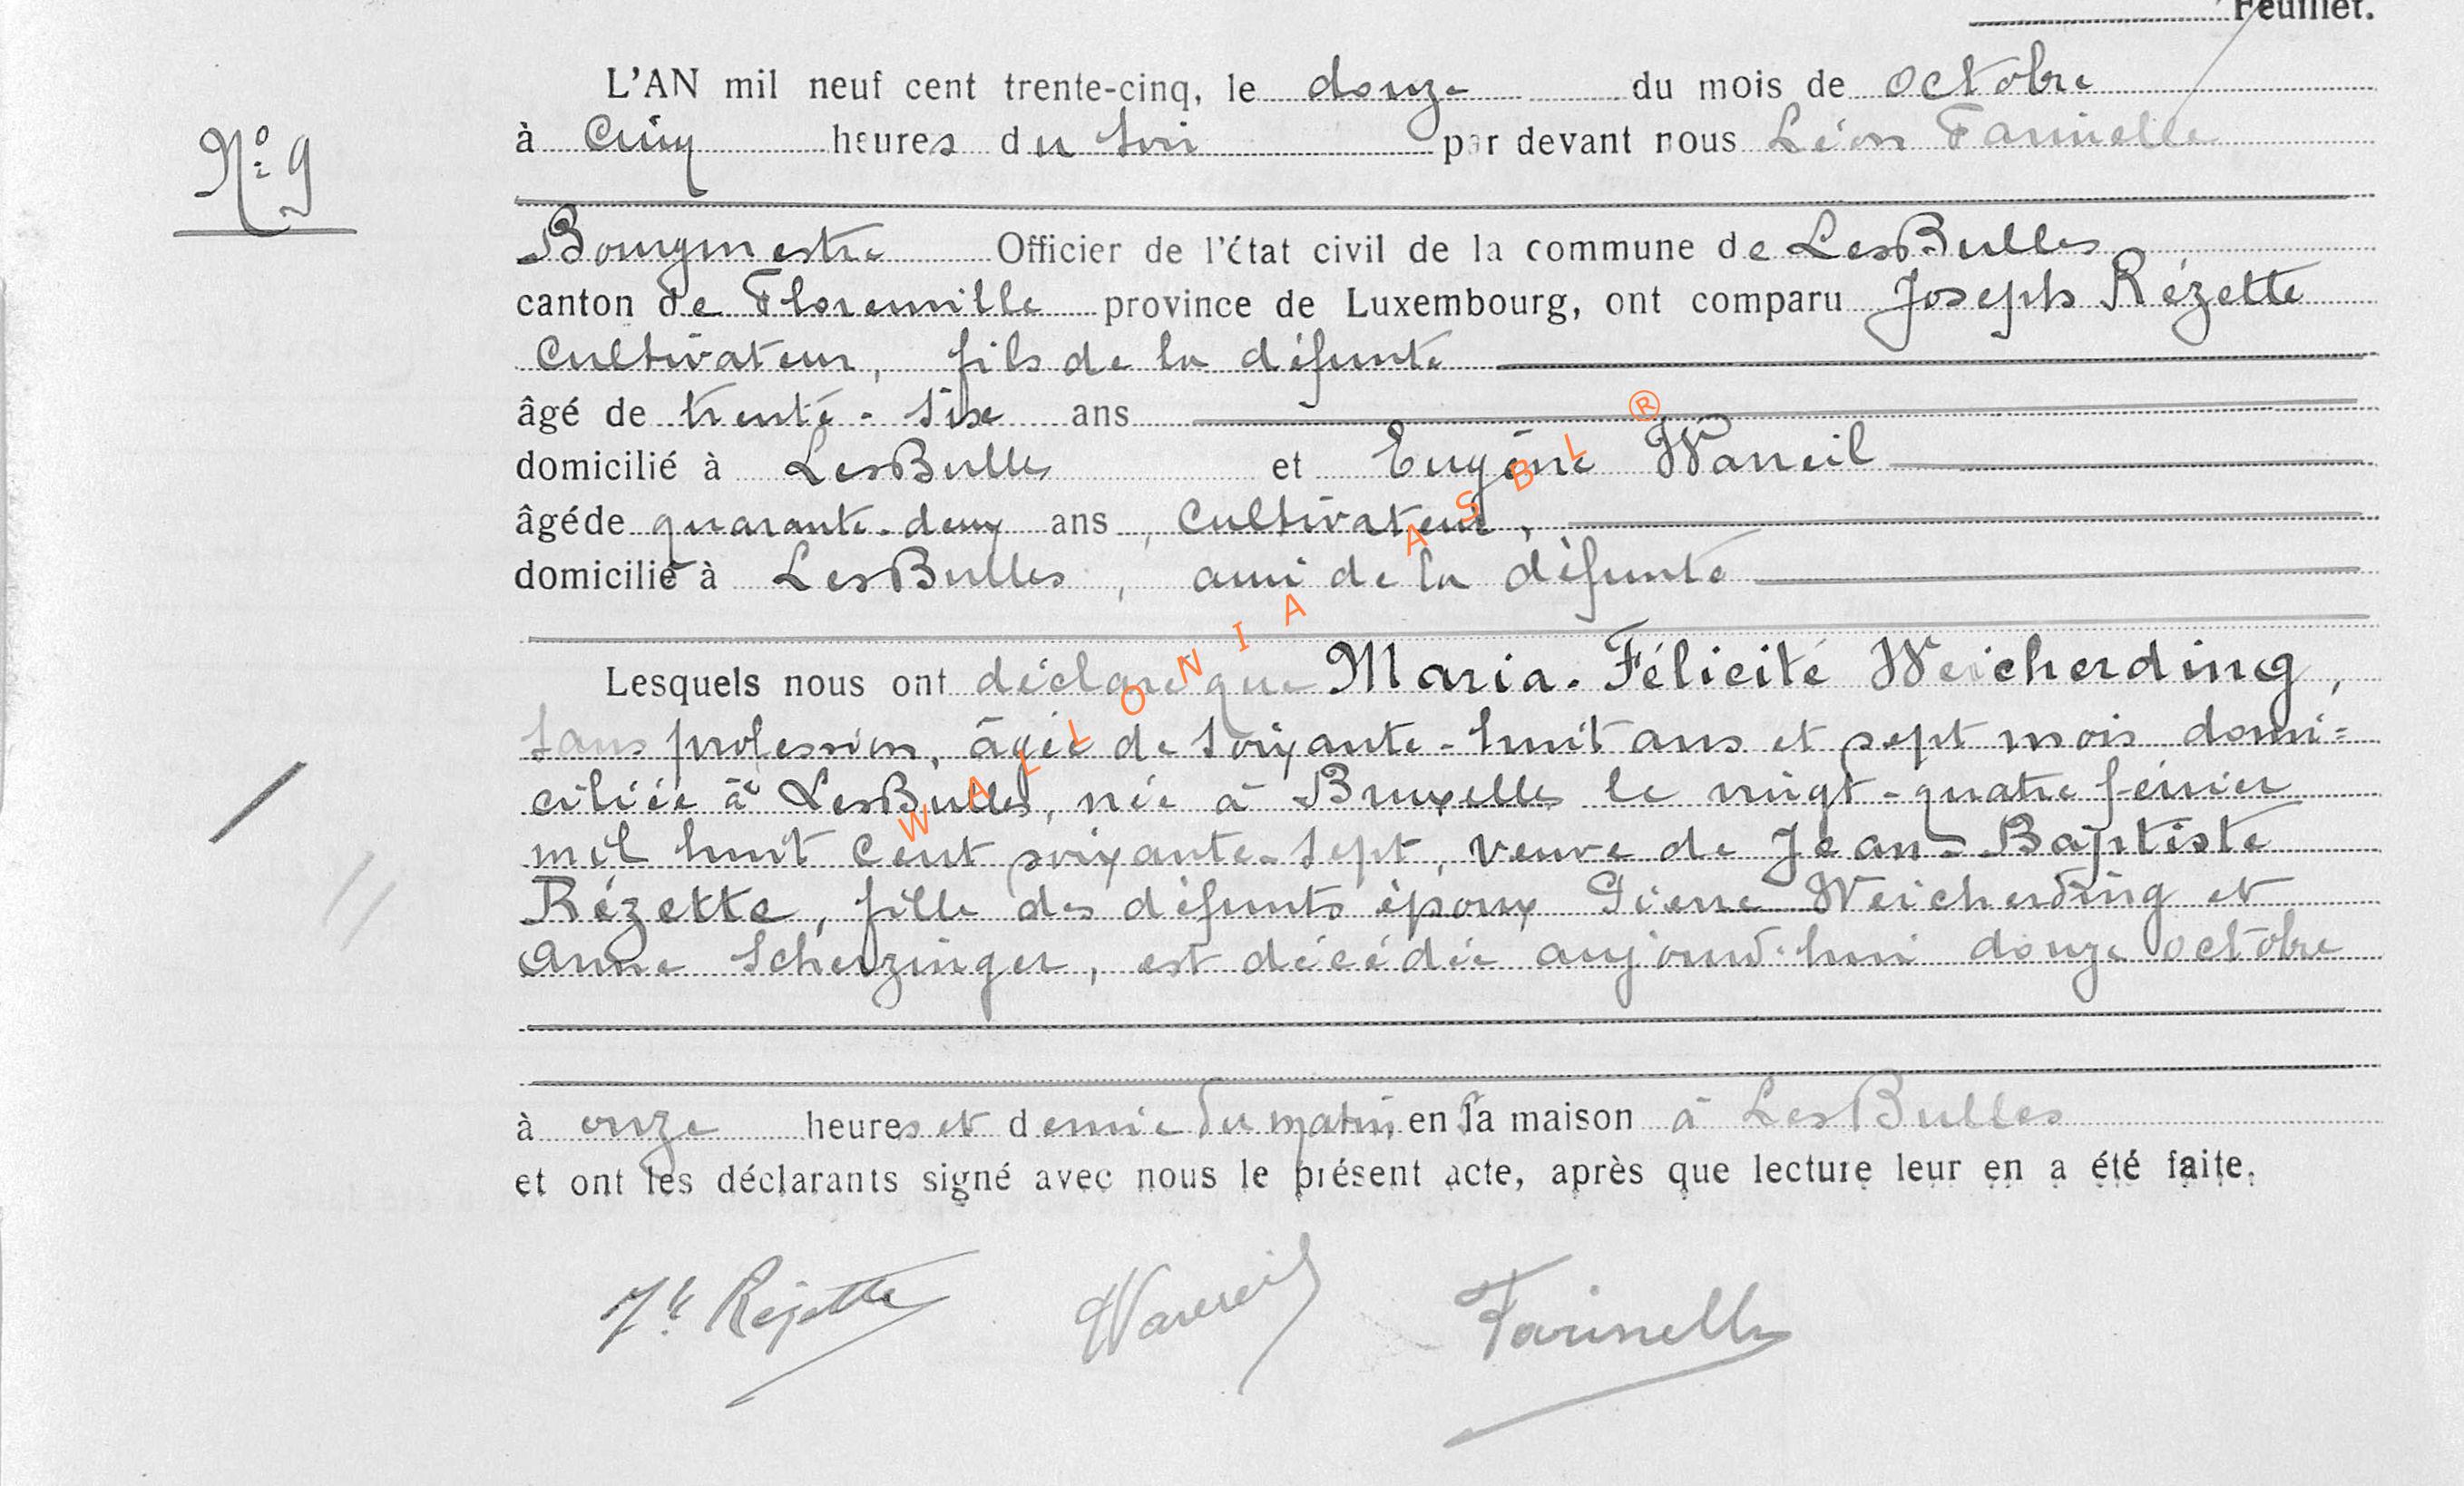 Feuillet.
L'AN mil neuf cent trente-cinq, le douze du mois de Octobre
à Cinq heures du soir par devant nous Léon Farinelle
N° 9
Bourgmestre Officier de l'état civil de la commune de LesBulles
canton de Florenville province de Luxembourg, ont comparu Joseph Rézette
Cultivateur, fils de la défunte
âgé de trente-six ans
domicilié à LesBulles et Eugène Warreil
âgé de quarante-deux ans, cultivateur,
domicilié à LesBulles, ami de la défunte
Lesquels nous ont déclaré que Maria-Félicité Weicherding,
sans profession, âgée de soixante-huit ans et sept mois domi=
ciliée à LesBulles, née à Bruxelles le vingt-quatre février
mil huit cent soixante-sept, veuve de Jean-Baptiste
Rézette, fille des défunts époux Pierre Weicherding et
Anne Scherzinger, est décédée aujourd'hui douze octobre
à onze heures et demie du matin, en sa maison à LesBulles
et ont les déclarants signé avec nous le présent acte, après que lecture leur en a été faite.
Jh Rézette Warreil Farinelle
WALLONIA ASBL ®